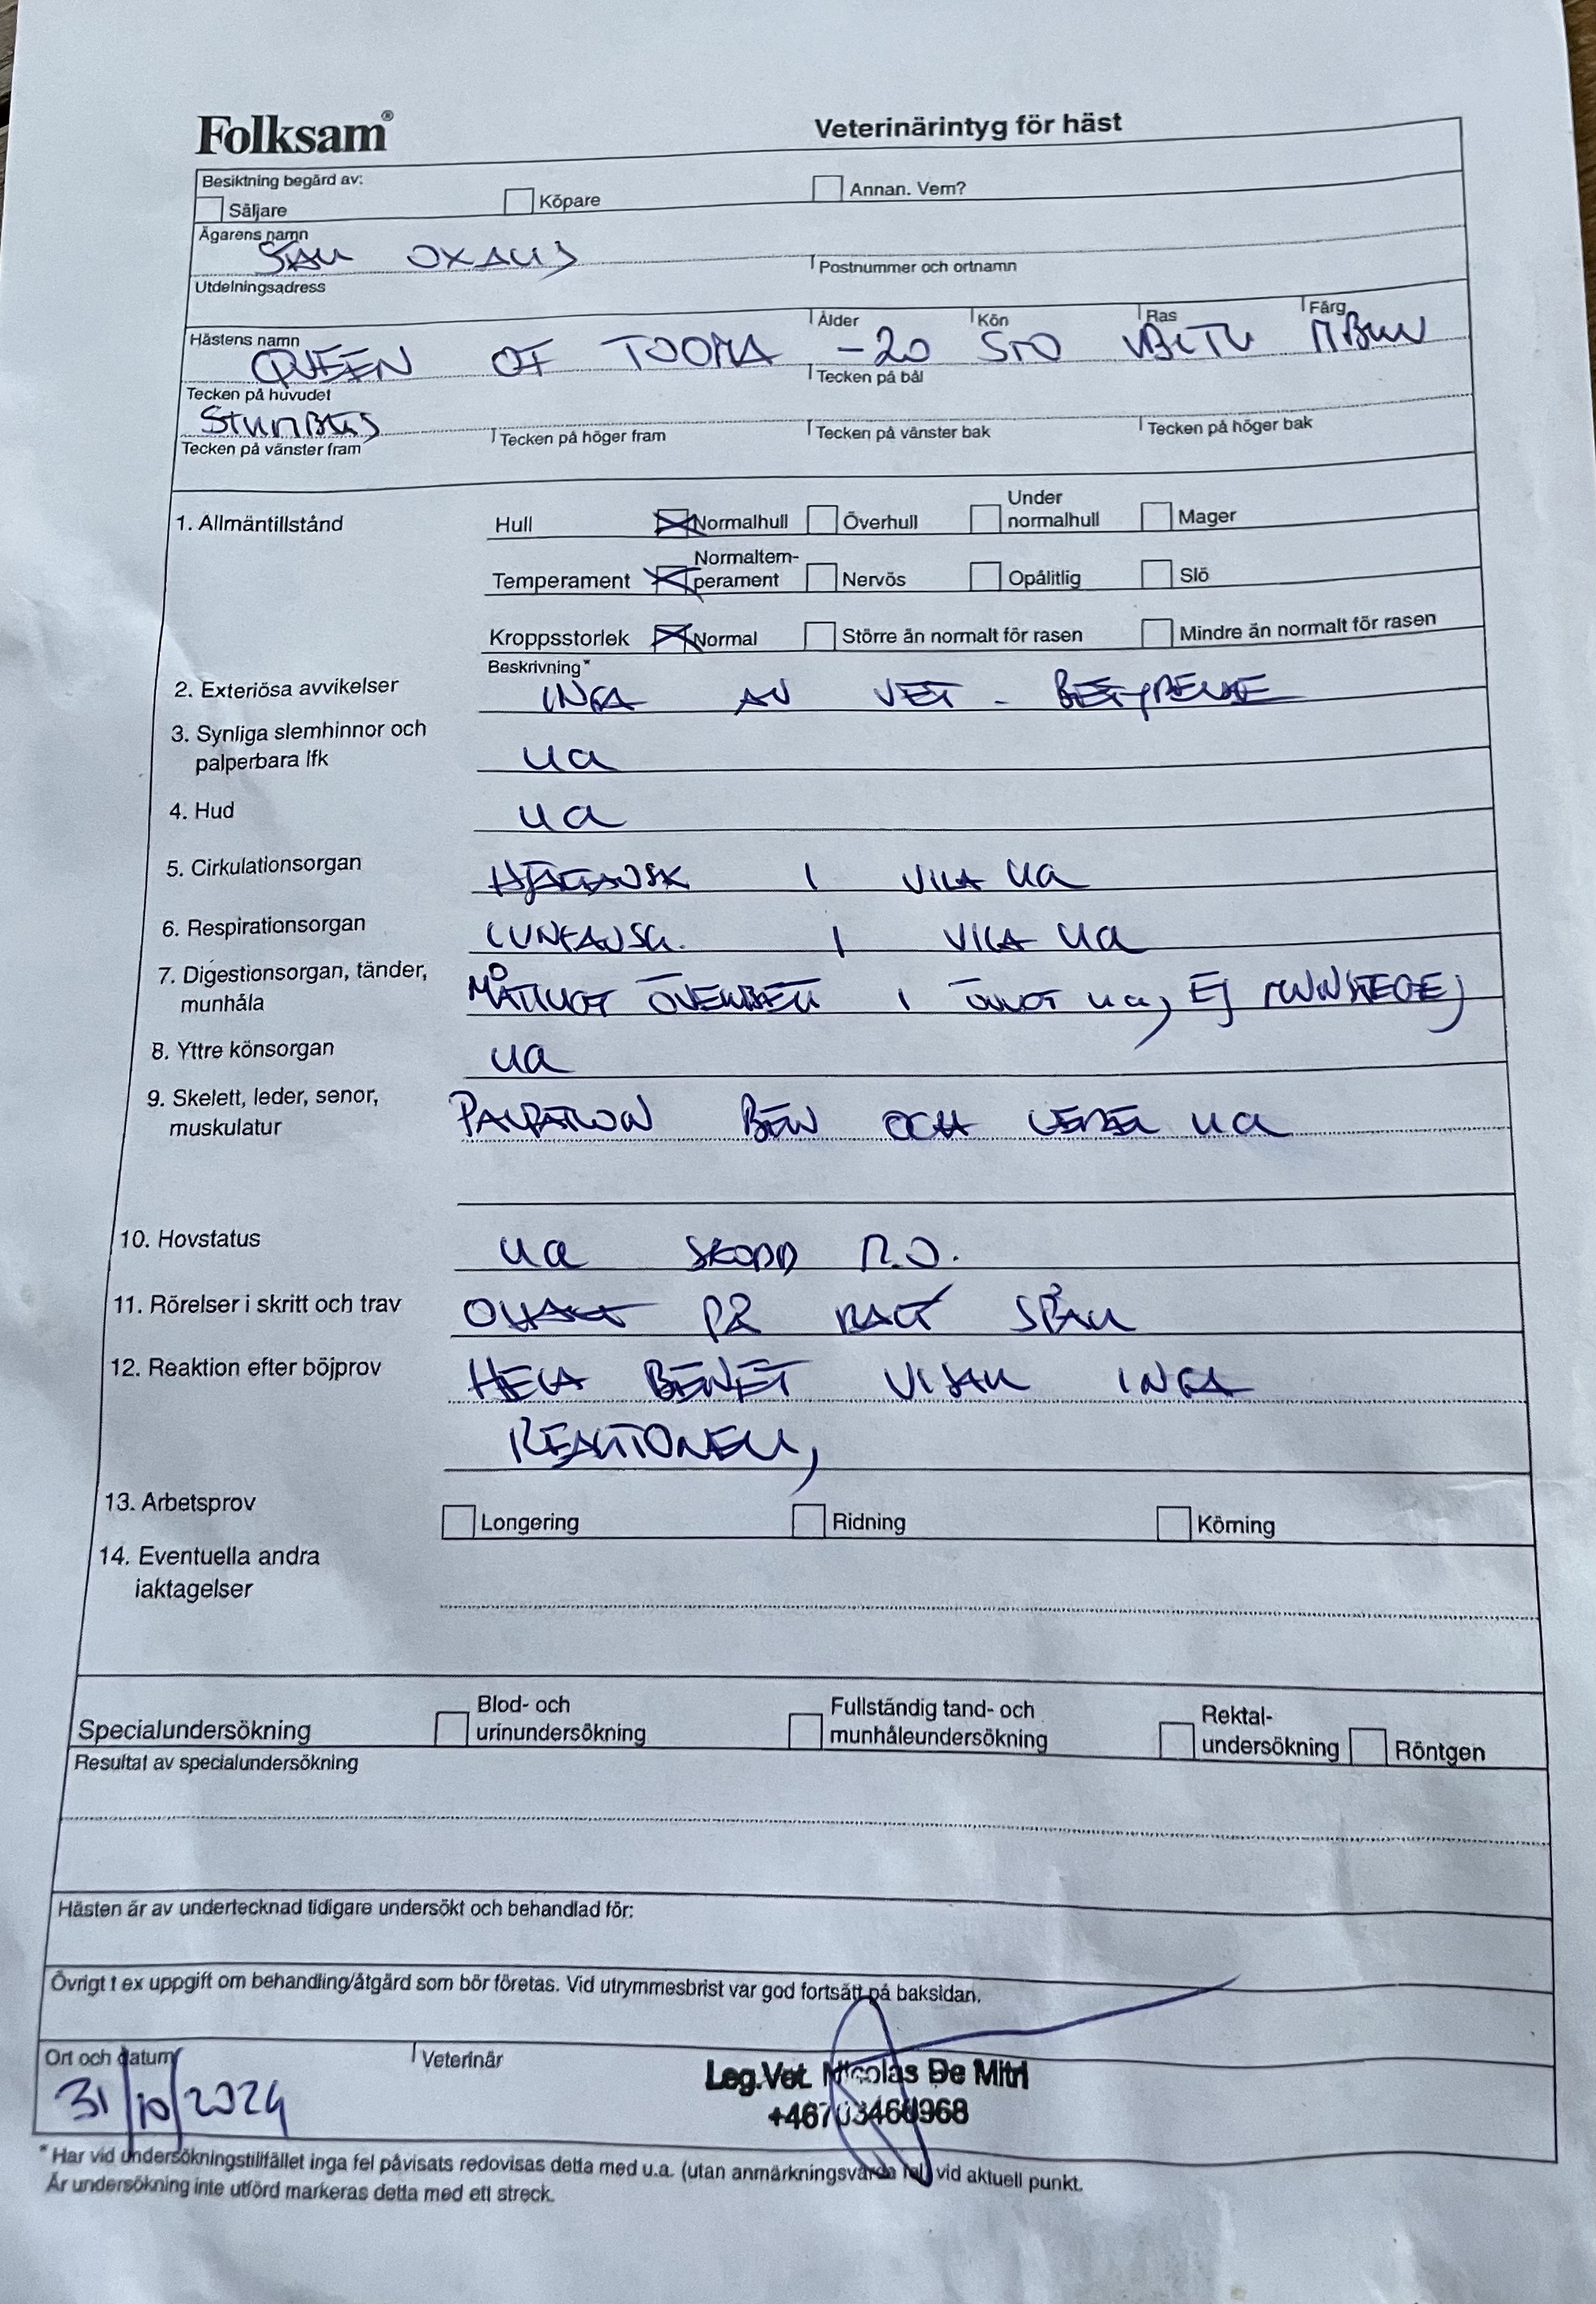 Folksam®
Veterinärintyg för häst
Besiktning begärd av:
Säljare Köpare Annan. Vem?
Ägarens namn
Utdelningsadress Postnummer och ortnamn
Hästens namn Ålder Kön Ras Färg
QUEEN OF TOOMA -20 STO
Tecken på huvudet Tecken på bål
Tecken på vänster fram Tecken på höger fram Tecken på vänster bak Tecken på höger bak
1. Allmäntillstånd Hull Normalhull Överhull Under normalhull Mager
Temperament Normaltem-perament Nervös Opålitlig Slö
Kroppsstorlek Normal Större än normalt för rasen Mindre än normalt för rasen
Beskrivning*
2. Exteriösa avvikelser INGA AV VET - BETYDELSE
3. Synliga slemhinnor och
palperbara lfk ua
4. Hud ua
5. Cirkulationsorgan HJÄRTAUSK I VILA ua
6. Respirationsorgan LUNGAUSK. I VILA ua
7. Digestionsorgan, tänder,
munhåla MÅTTLIGT ÖVERBETT I ÖVRIGT ua, EJ MUNSTEGE
8. Yttre könsorgan ua
9. Skelett, leder, senor,
muskulatur PALPATION BEN OCH LEDER ua
10. Hovstatus ua SKODD
11. Rörelser i skritt och trav OHALT PÅ RAKT SPÅR
12. Reaktion efter böjprov HELA BENET VISAR INGA
REAKTIONER,
13. Arbetsprov Longering Ridning Körning
14. Eventuella andra
iaktagelser
Specialundersökning Blod- och urinundersökning Fullständig tand- och munhåleundersökning Rektal-undersökning Röntgen
Resultat av specialundersökning
Hästen är av undertecknad tidigare undersökt och behandlad för:
Övrigt t ex uppgift om behandling/åtgärd som bör företas. Vid utrymmesbrist var god fortsätt på baksidan.
Ort och datum Veterinär
31/10/2024
Leg.Vet. Nicolas De Mitri
+46703460968
* Har vid undersökningstillfället inga fel påvisats redovisas detta med u.a. (utan anmärkningsvärda fel) vid aktuell punkt.
Är undersökning inte utförd markeras detta med ett streck.